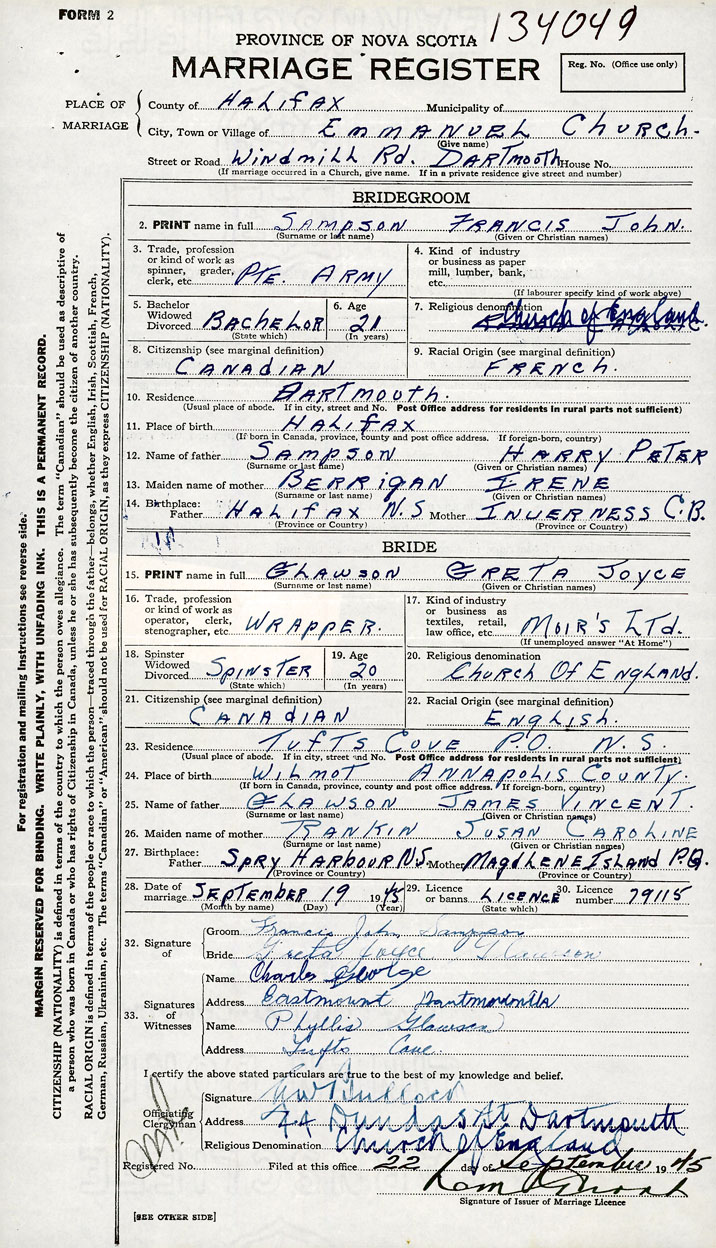 FORM 2
134049
PROVINCE OF NOVA SCOTIA
MARRIAGE REGISTER
Reg. No. (Office use only)
PLACE OF MARRIAGE
County of HALIFAX Municipality of
City, Town or Village of EMMANUEL CHURCH.
(Give name)
Street or Road WINDMILL RD. DARTMOUTH House No.
(If marriage occurred in a Church, give name. If in a private residence give street and number)
BRIDEGROOM
2. PRINT name in full SAMPSON FRANCIS JOHN.
(Surname or last name) (Given or Christian names)
3. Trade, profession or kind of work as spinner, grader, clerk, etc. PTE. ARMY
4. Kind of industry or business as paper mill, lumber, bank, etc.
(If labourer specify kind of work above)
5. Bachelor Widowed Divorced BACHELOR
(State which)
6. Age 21
(In years)
7. Religious denomination Church of England.
8. Citizenship (see marginal definition)
CANADIAN
9. Racial Origin (see marginal definition)
FRENCH.
10. Residence DARTMOUTH.
(Usual place of abode. If in city, street and No. Post Office address for residents in rural parts not sufficient)
11. Place of birth HALIFAX
(If born in Canada, province, county and post office address. If foreign-born, country)
12. Name of father SAMPSON HARRY PETER
(Surname or last name) (Given or Christian names)
13. Maiden name of mother BERRIGAN IRENE
(Surname or last name) (Given or Christian names)
14. Birthplace: Father HALIFAX N.S Mother INVERNESS C.B.
(Province or Country) (Province or Country)
BRIDE
15. PRINT name in full GLAWSON GRETA JOYCE
(Surname or last name) (Given or Christian names)
16. Trade, profession or kind of work as operator, clerk, stenographer, etc. WRAPPER.
17. Kind of industry or business as textiles, retail, law office, etc. MOIR'S LTD.
(If unemployed answer "At Home")
18. Spinster Widowed Divorced SPINSTER
(State which)
19. Age 20
(In years)
20. Religious denomination
CHURCH OF ENGLAND.
21. Citizenship (see marginal definition)
CANADIAN
22. Racial Origin (see marginal definition)
ENGLISH.
23. Residence TUFTS COVE P.O. N.S.
(Usual place of abode. If in city, street and No. Post Office address for residents in rural parts not sufficient)
24. Place of birth WILMOT ANNAPOLIS COUNTY.
(If born in Canada, province, county and post office address. If foreign-born, country)
25. Name of father GLAWSON JAMES VINCENT.
(Surname or last name) (Given or Christian names)
26. Maiden name of mother RANKIN SUSAN CAROLINE
(Surname or last name) (Given or Christian names)
27. Birthplace: Father SPRY HARBOUR N.S. Mother MAGDLENE ISLAND P.Q.
(Province or Country) (Province or Country)
28. Date of marriage SEPTEMBER 19 1945
(Month by name) (Day) (Year)
29. Licence or banns LICENCE
(State which)
30. Licence number 79115
32. Signature of
Groom Francis John Sampson
Bride Greta Joyce Glawson
33. Signatures of Witnesses
Name Charles George
Address Eastmount
Name Phyllis Glawson
Address Tufts Cove.
I certify the above stated particulars are true to the best of my knowledge and belief.
Officiating Clergyman
Signature
Address 44 Dundas St Dartmouth
Religious Denomination Church of England
Registered No. Filed at this office 22 day of September 1945
Signature of Issuer of Marriage Licence
[SEE OTHER SIDE]
For registration and mailing instructions see reverse side.
MARGIN RESERVED FOR BINDING. WRITE PLAINLY, WITH UNFADING INK. THIS IS A PERMANENT RECORD.
CITIZENSHIP (NATIONALITY) is defined in terms of the country to which the person owes allegiance. The term "Canadian" should be used as descriptive of
a person who was born in Canada or who has rights of Citizenship in Canada, unless he or she has subsequently become the citizen of another country.
RACIAL ORIGIN is defined in terms of the people or race to which the person—traced through the father—belongs, whether English, Irish, Scottish, French,
German, Russian, Ukrainian, etc. The terms "Canadian" or "American" should not be used for RACIAL ORIGIN, as they express CITIZENSHIP (NATIONALITY).